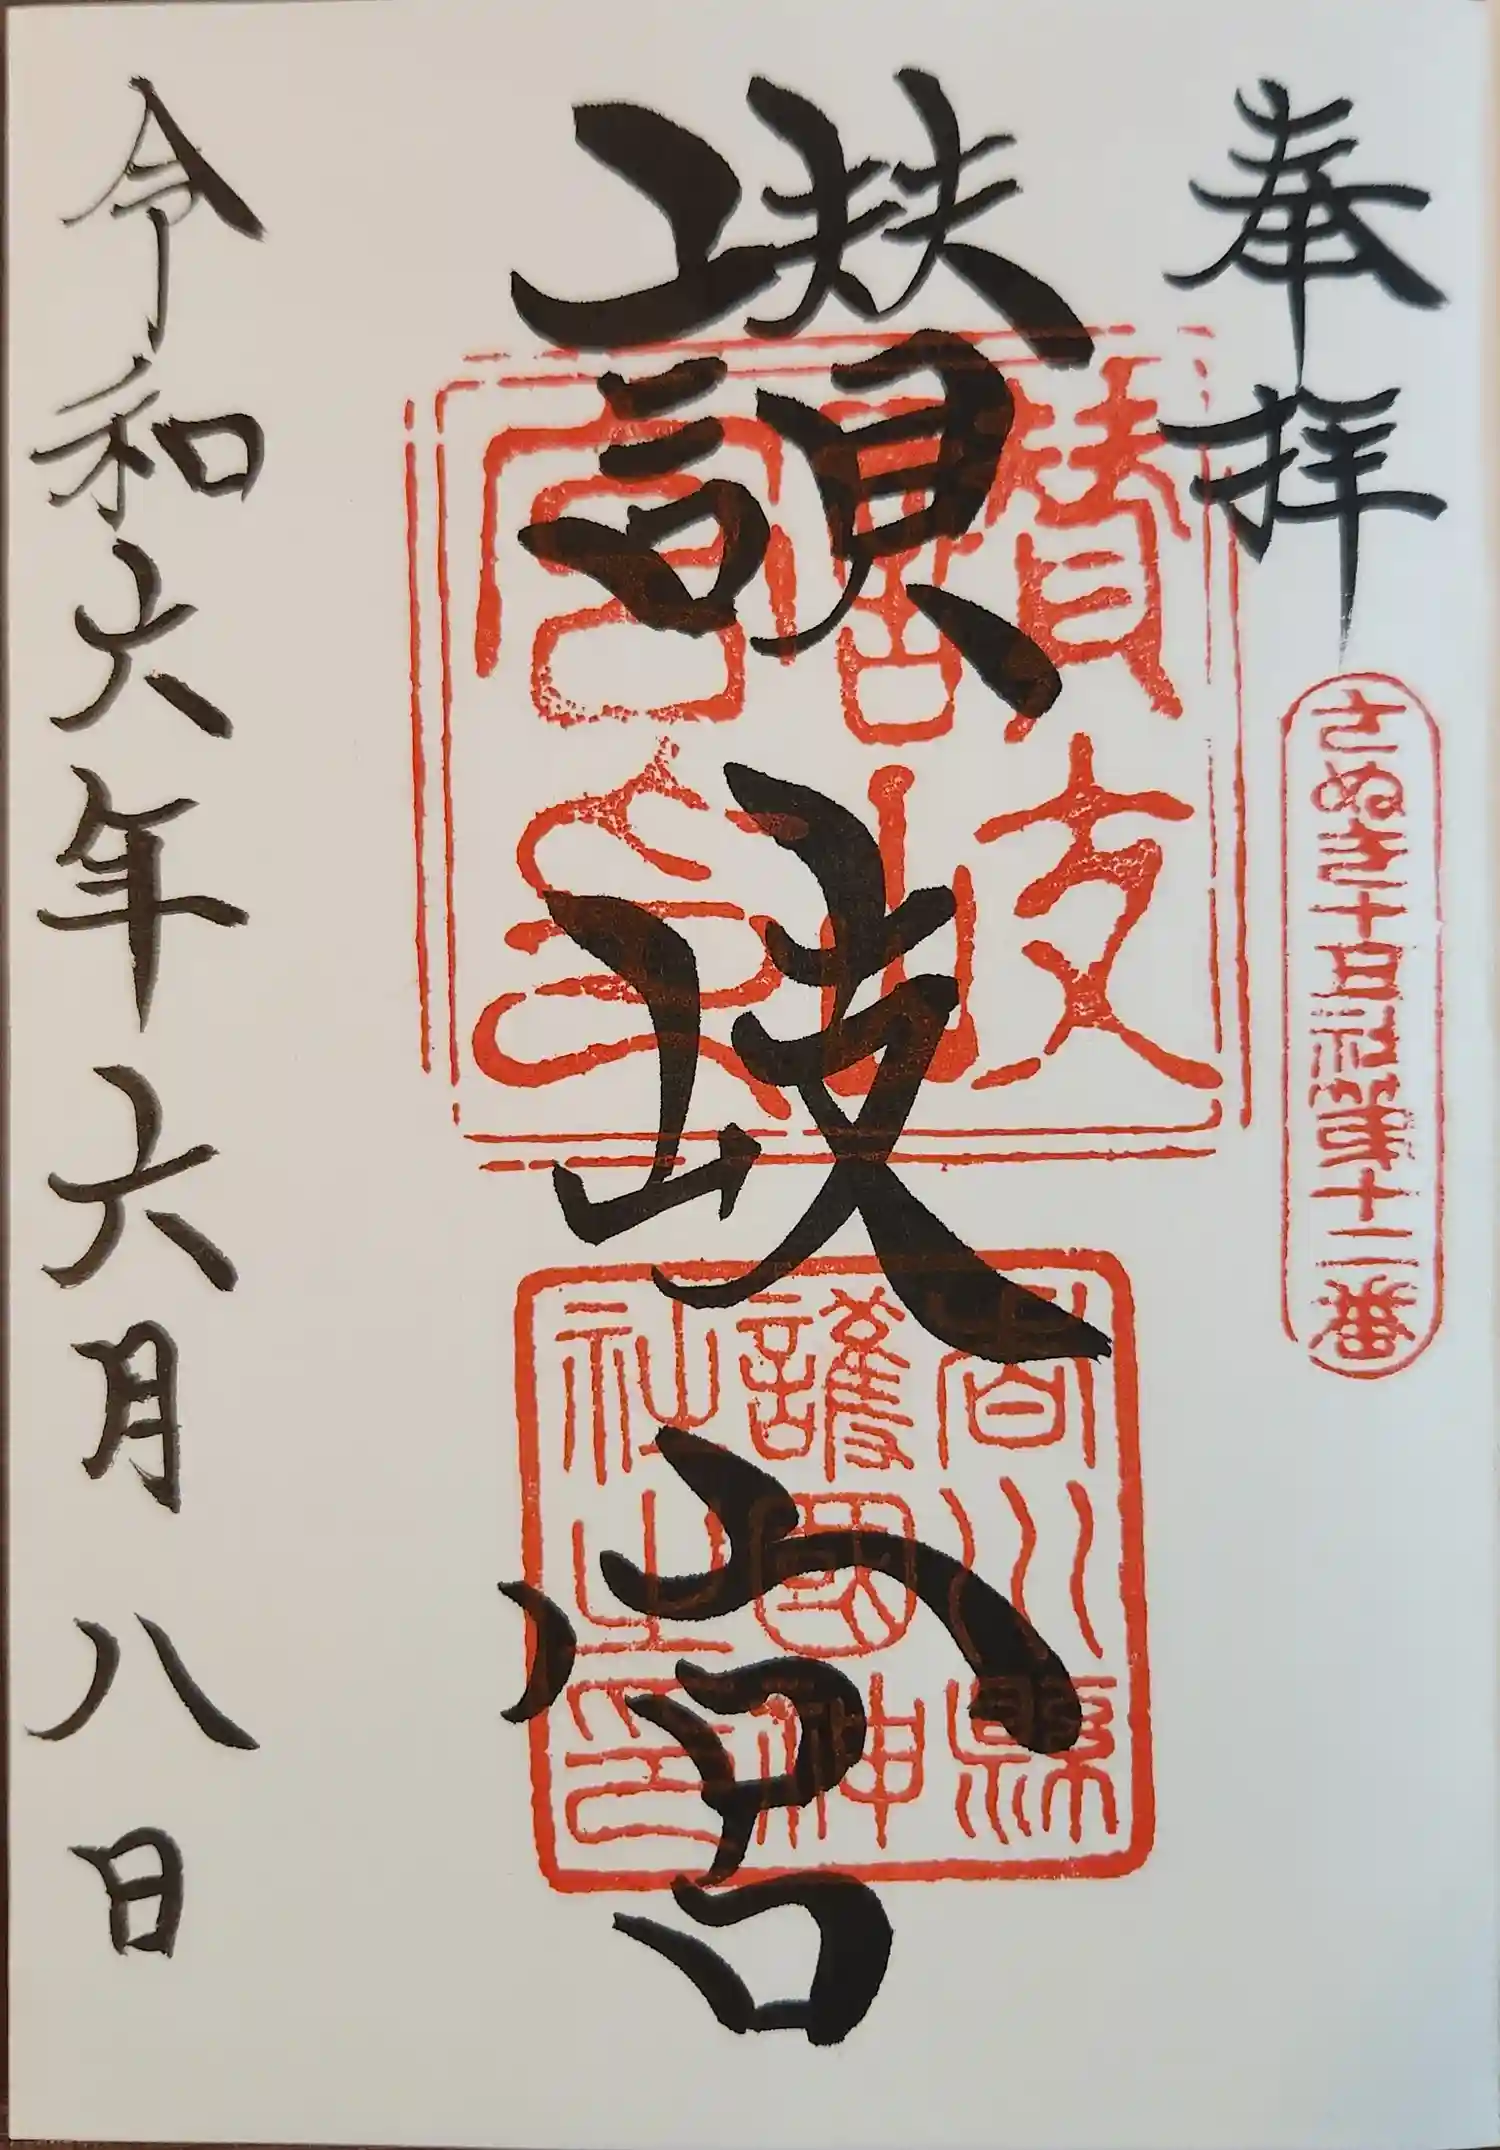 奉拝
さぬき十五社第十二番
讃岐宮
讃岐宮
香川縣
護國神
社之印
令和六年六月八日